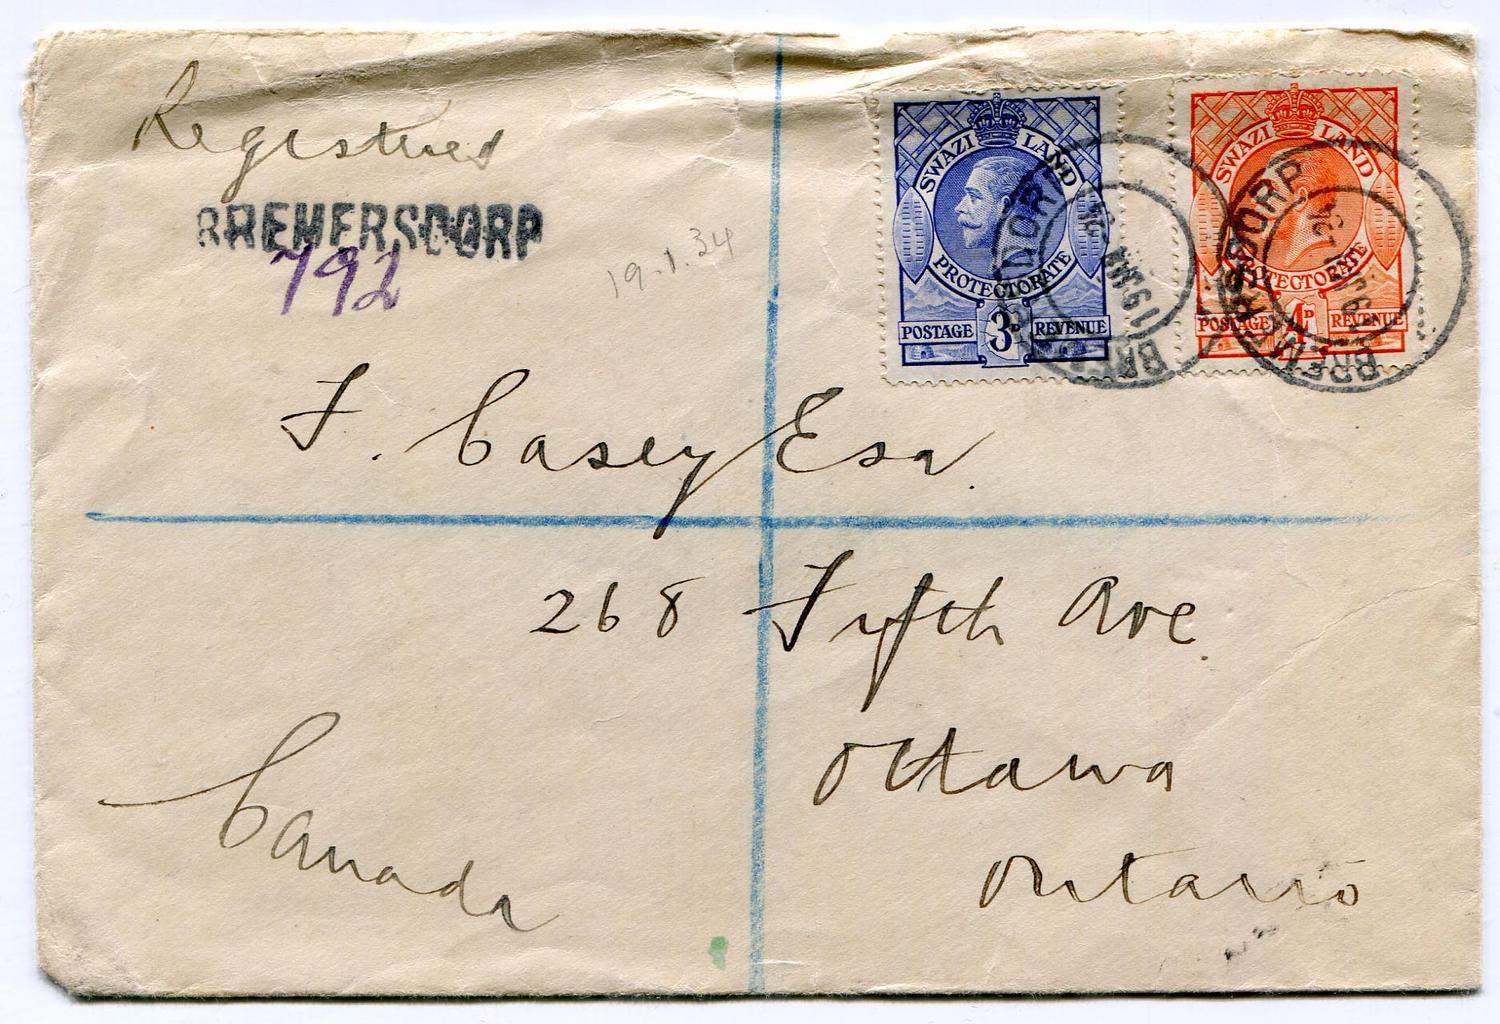 Registered
BREMERSDORP
792
19.1.34
SWAZI LAND
PROTECTORATE
POSTAGE 3D REVENUE
SWAZI LAND
PROTECTORATE
POSTAGE 4D REVENUE
BREMERSDORP
19 JAN 34
BREMERSDORP
F. Casey Esq.
268 Fifth Ave.
Ottawa
Ontario
Canada